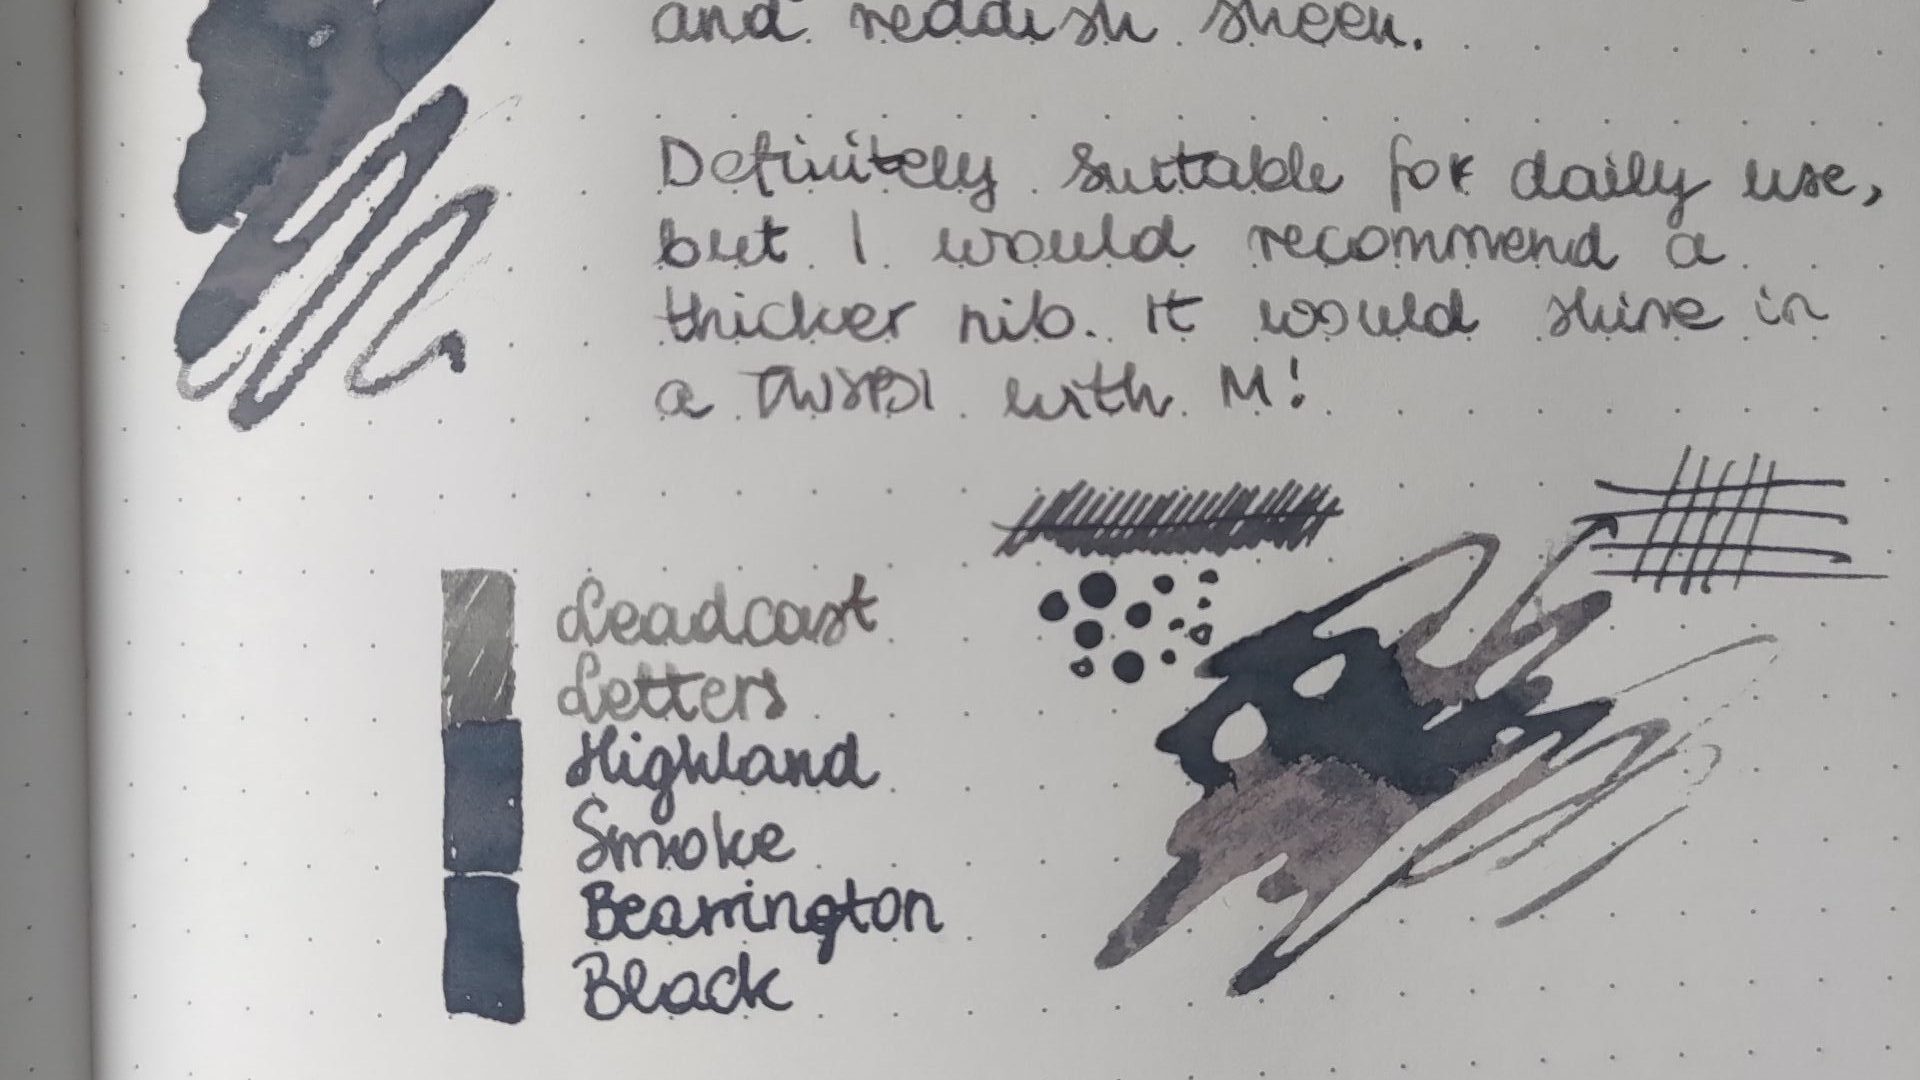 and reddish sheen.
Definitely suitable for daily use,
but I would recommend a
thicker nib. It would shine in
a TWSBI with M!
Leadcast
Letters
Highland
Smoke
Bearrington
Black